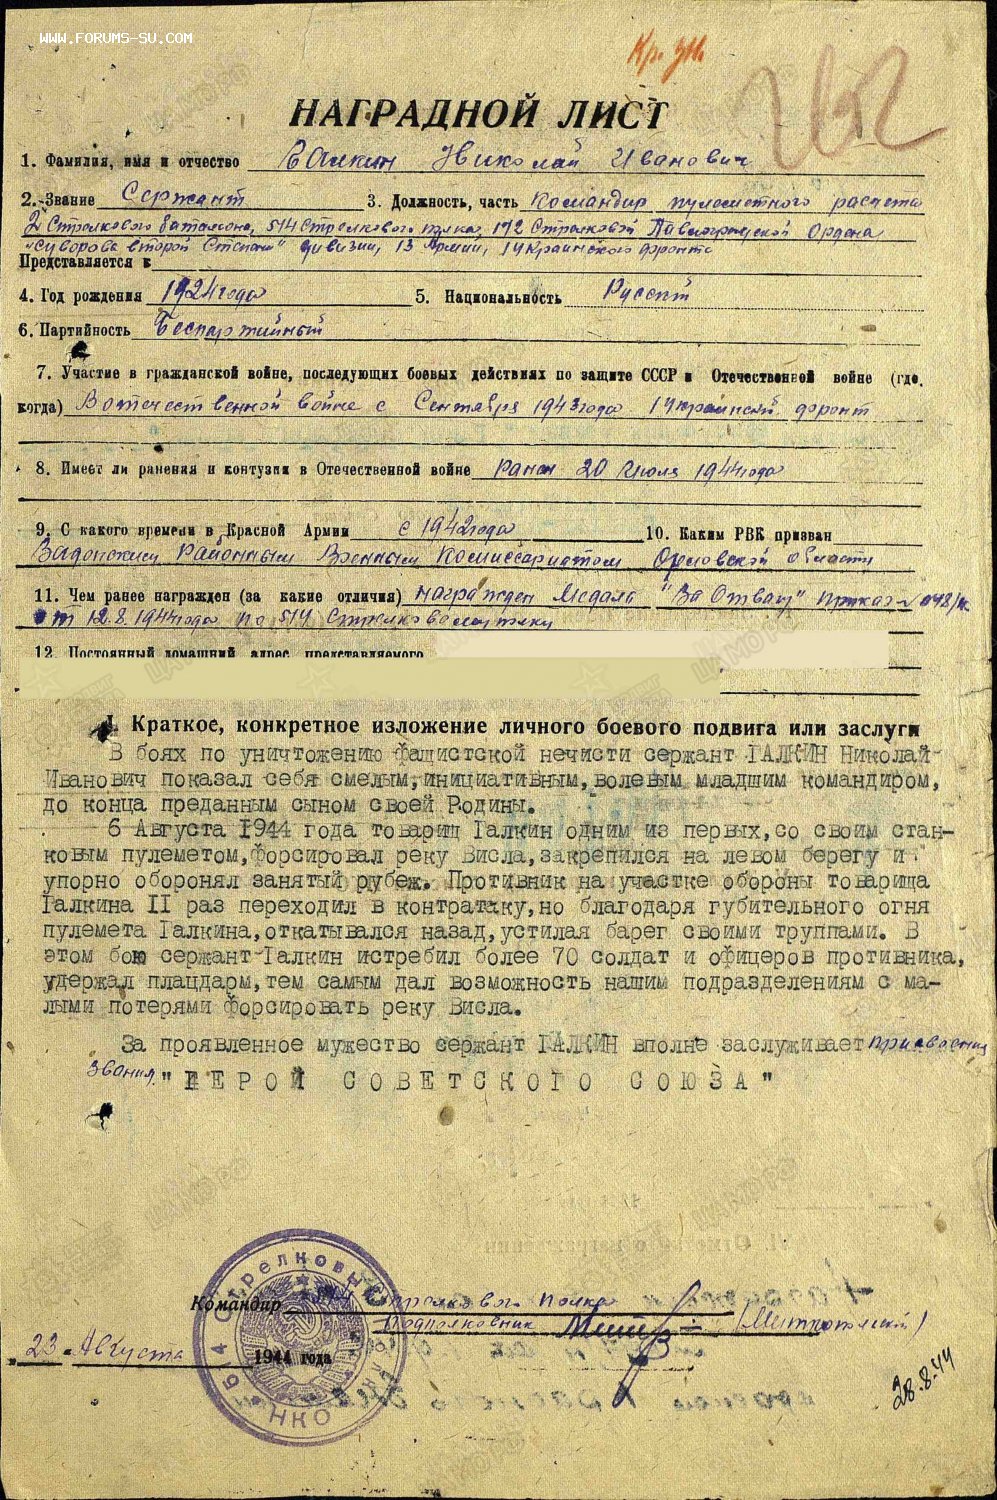 WWW.FORUMS-SU.COM
Кр. Зн.
НАГРАДНОЙ ЛИСТ
1. Фамилия, имя и отчество Галкин Николай Иванович
2. Звание Сержант 3. Должность, часть Командир пулеметного расчета
2 Стрелкового батальона, 514 Стрелкового полка, 172 Стрелковой Павлоградской Ордена
"Суворова второй Степени" дивизии, 13 Армии, 1 Украинского фронта
Представляется к
4. Год рождения 1924 года 5. Национальность Русский
6. Партийность Беспартийный
7. Участие в гражданской войне, последующих боевых действиях по защите СССР и Отечественной войне (где,
когда) В отечественной войне с Сентября 1943 года 1 Украинский фронт
8. Имеет ли ранения и контузии в Отечественной войне Ранен 20 Июля 1944 года
9. С какого времени в Красной Армии с 1942 года 10. Каким РВК призван
Районным Военным Комиссариатом Орловской области
11. Чем ранее награжден (за какие отличия) награжден Медаль "За Отвагу" приказ № 048/н
от 12.8.1944 года по 514 Стрелковому полку
12. Постоянный домашний адрес представляемого
I. Краткое, конкретное изложение личного боевого подвига или заслуги
В боях по уничтожению фашистской нечисти сержант ГАЛКИН Николай
Иванович показал себя смелым, инициативным, волевым младшим командиром,
до конца преданным сыном своей Родины.
6 Августа 1944 года товарищ Галкин одним из первых, со своим стан-
ковым пулеметом, форсировал реку Висла, закрепился на левом берегу и
упорно оборонял занятый рубеж. Противник на участке обороны товарища
Галкина II раз переходил в контратаку, но благодаря губительного огня
пулемета Галкина, откатывался назад, устилая барег своими труппами. В
этом бою сержант Галкин истребил более 70 солдат и офицеров противника,
удержал плацдарм, тем самым дал возможность нашим подразделениям с ма-
лыми потерями форсировать реку Висла.
За проявленное мужество сержант ГАЛКИН вполне заслуживает присвоения
звания "ГЕРОЙ СОВЕТСКОГО СОЮЗА"
514 Стрелковый полк
НКО
Командир 514 Стрелкового Полка
Подполковник
"23" Августа 1944 года
28.8.44